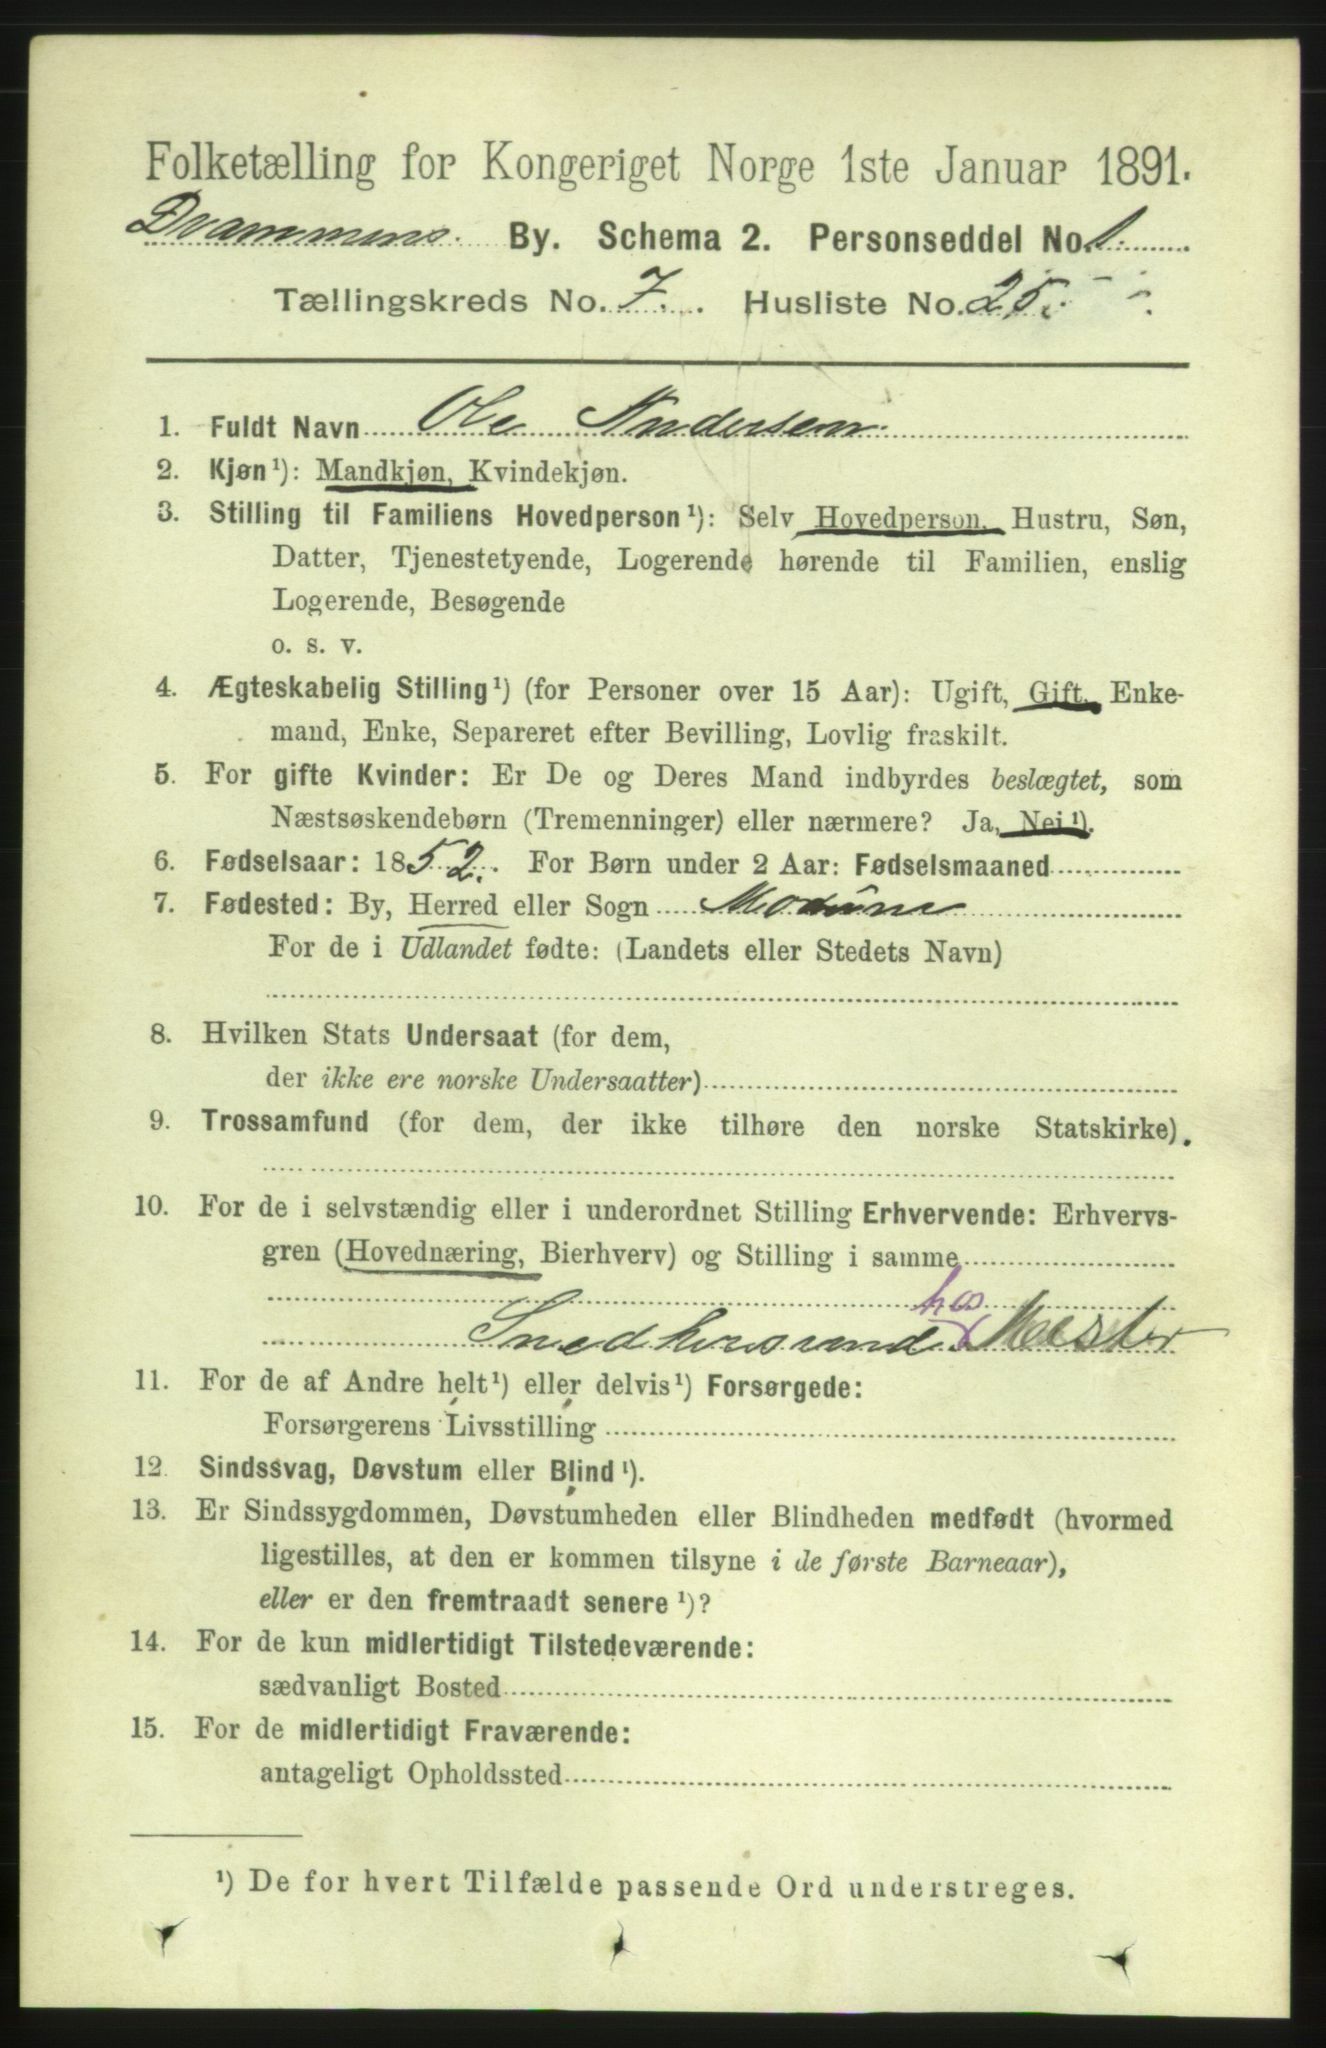 Folketælling for Kongeriget Norge 1ste Januar 1891.
Drammens By. Schema 2. Personseddel No. 1.
Tællingskreds No. 7. Husliste No. 25.
1. Fuldt Navn Ole Andersen.
2. Kjøn¹): Mandkjøn, Kvindekjøn.
3. Stilling til Familiens Hovedperson¹): Selv Hovedperson, Hustru, Søn,
Datter, Tjenestetyende, Logerende hørende til Familien, enslig
Logerende, Besøgende
o. s. v.
4. Ægteskabelig Stilling¹) (for Personer over 15 Aar): Ugift, Gift, Enke-
mand, Enke, Separeret efter Bevilling, Lovlig fraskilt.
5. For gifte Kvinder: Er De og Deres Mand indbyrdes beslægtet, som
Næstsøskendebørn (Tremenninger) eller nærmere? Ja, Nei¹).
6. Fødselsaar: 1852. For Børn under 2 Aar: Fødselsmaaned
7. Fødested: By, Herred eller Sogn Modum
For de i Udlandet fødte: (Landets eller Stedets Navn)
8. Hvilken Stats Undersaat (for dem,
der ikke ere norske Undersaatter)
9. Trossamfund (for dem, der ikke tilhøre den norske Statskirke).
10. For de i selvstændig eller i underordnet Stilling Erhvervende: Erhvervs-
gren (Hovednæring, Bierhverv) og Stilling i samme
hos
Snedkersvend Mester
11. For de af Andre helt¹) eller delvis¹) Forsørgede:
Forsørgerens Livsstilling
12. Sindssvag, Døvstum eller Blind¹).
13. Er Sindssygdommen, Døvstumheden eller Blindheden medfødt (hvormed
ligestilles, at den er kommen tilsyne i de første Barneaar),
eller er den fremtraadt senere¹)?
14. For de kun midlertidigt Tilstedeværende:
sædvanligt Bosted
15. For de midlertidigt Fraværende:
antageligt Opholdssted
¹) De for hvert Tilfælde passende Ord understreges.